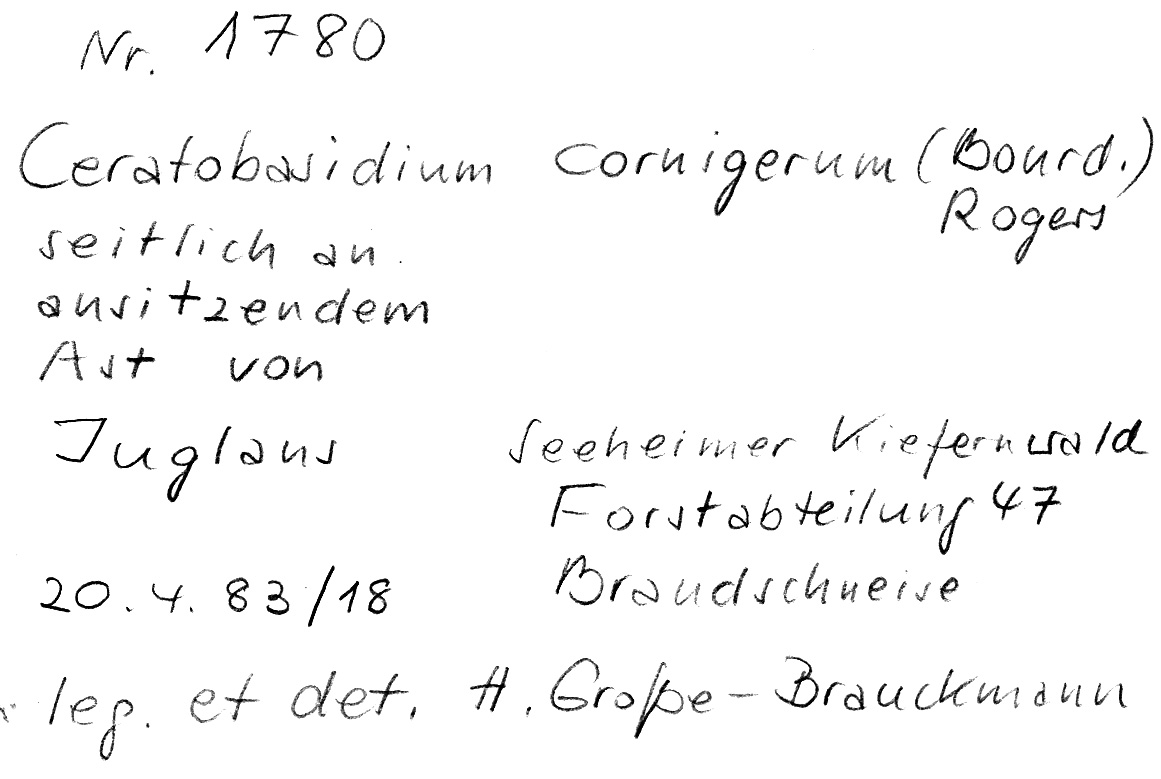 Nr. 1780
Ceratobasidium cornigerum (Bourd.)
Rogers
seitlich an
ansitzendem
Ast von
Juglans
Seeheimer Kiefernwald
Forstabteilung 47
Brandschneise
20.4.83/18
leg. et det. H. Große-Brauckmann